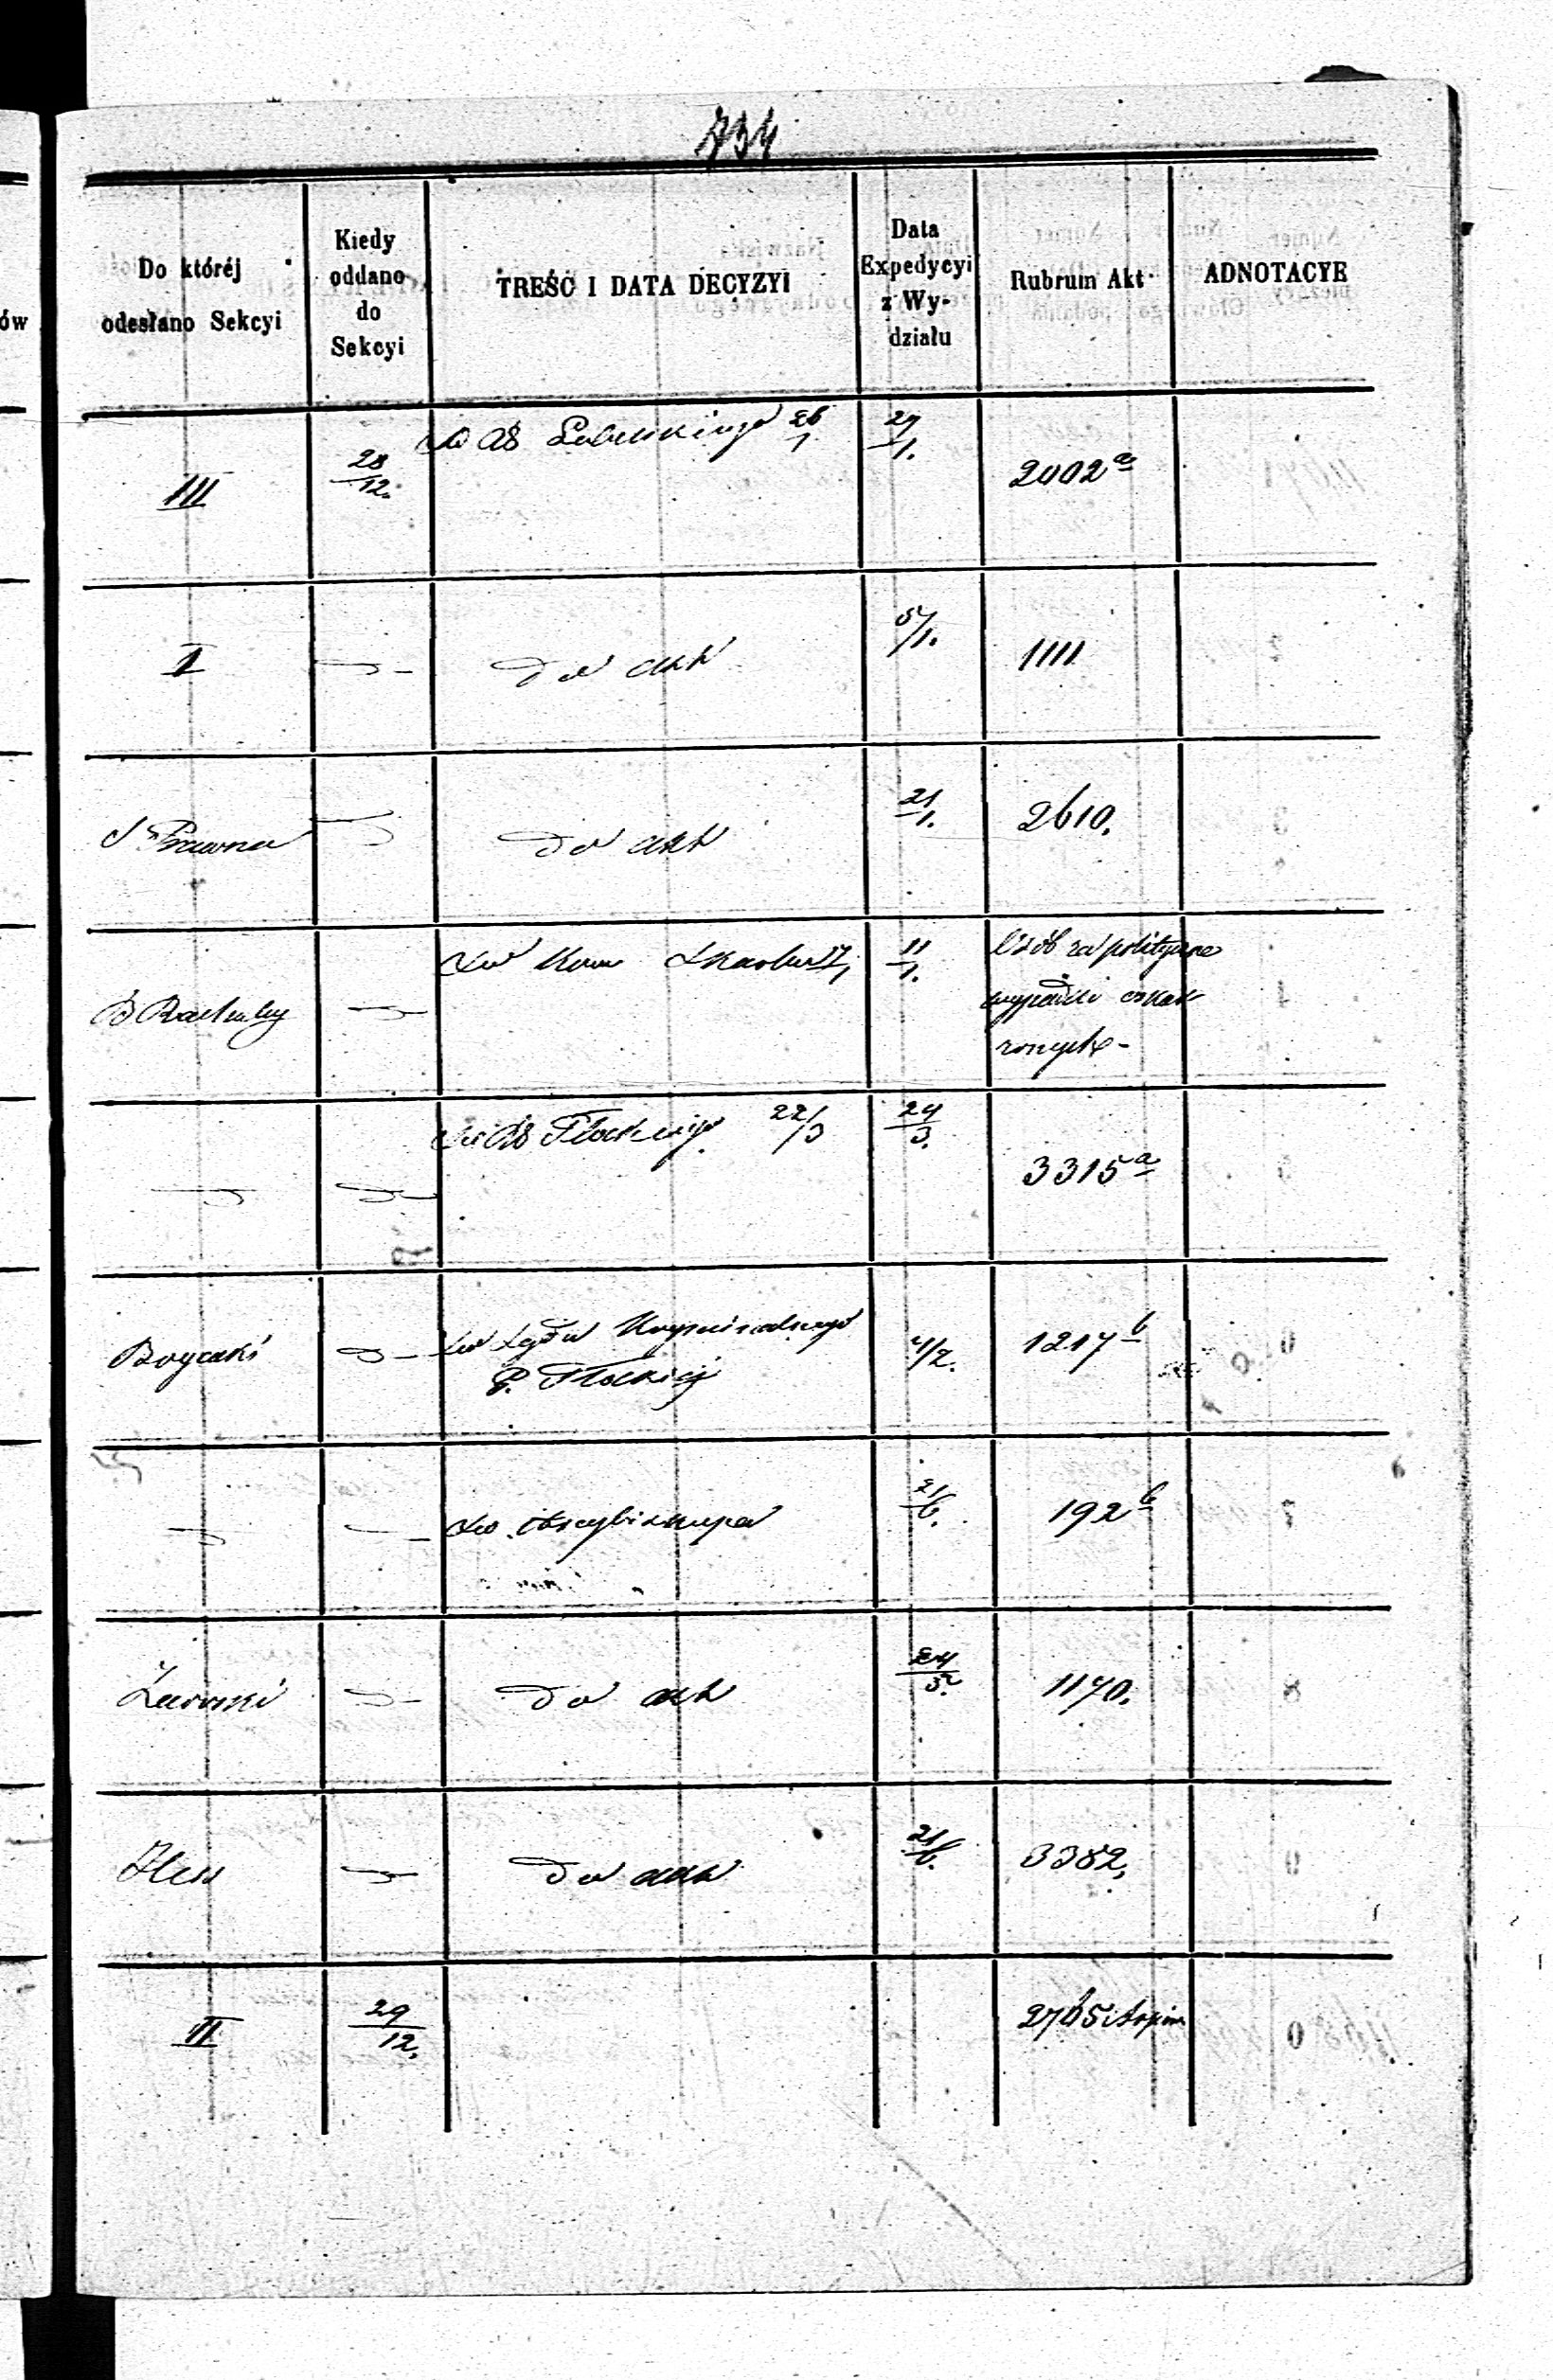 734
Do któréj odesłano Sekcyi | Kiedy oddano do Sekcyi | TREŚĆ I DATA DECYZYI | Data Expedycyi z Wydziału | Rubrum Akt | ADNOTACYE
III | 28/12. | Do Lubelskiego 26/1 | 29/1. | 2002 a
I | Do akt | 5/1. | 1111
S. Prawna | Do akt | 21/1. | 2610.
Do Kom Skarbu | 11/1. | Osób za polityczne
wypadki oskar
zonych -
Do Płockiego 22/3 | 24/3. | 3315 a
Do Sądu Kryminalnego
G. Płockiéj | 4/2. | 1217 b
Do Arcybiskupa | 21/6. | 192 b
Do akt | 24/3. | 1170.
Hess | Do akt | 21/6. | 3382,
II | 29/12. | 2765